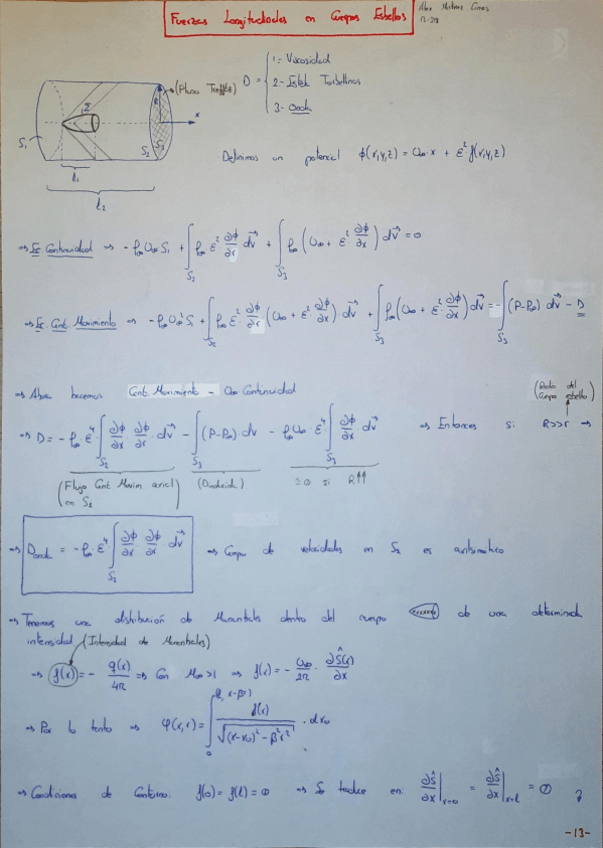 Fuerzas Longitudinales en Cuerpos Esbeltos
(Plano Trefftz)
D = { 1- Viscosidad
2- Estela Torbellinos
3- Onda
Σ
R
x
S₁
S₂
S₃
l₁
l₂
Definimos un potencial ϕ(x,y,z) = U∞·x + ε² f(x,y,z)
⇒ Ec Continuidad ⇒ -ρ∞U∞S₁ + ∫S₂ ρ∞ε² ∂ϕ/∂r dv⃗ + ∫S₃ ρ∞(U∞ + ε² ∂ϕ/∂x) dv⃗ = 0
⇒ Ec. Cant. Movimiento ⇒ -ρ∞U∞²S₁ + ∫S₂ ρ∞ε² ∂ϕ/∂r (U∞ + ε² ∂ϕ/∂x)·dv⃗ + ∫S₃ ρ∞(U∞ + ε² ∂ϕ/∂x) dv⃗ = -∫S₃ (P-P∞) dv⃗ - D
⇒ Ahora hacemos Cant. Movimiento - U∞ Continuidad
(Radio del Cuerpo esbelto)
⇒ D = -ρ∞·ε⁴ ∫S₂ ∂ϕ/∂x · ∂ϕ/∂r · dv⃗ - ∫S₃ (P-P∞)·dv - ρ∞U∞·ε⁴ ∫S₃ ∂ϕ/∂x dv⃗ ⇒ Entonces si R>>r ⇒
(Flujo Cant Movim axial en S₂)
≃0 si R↑↑
⇒ Donda = -ρ∞·ε⁴ ∫S₂ ∂ϕ/∂x ∂ϕ/∂r dv⃗ ⇒ Campo de velocidades en S₂ es axilsimétrico
⇒ Tenemos una distribución de Manantiales dentro del cuerpo de una determinada
intensidad (Intensidad de Manantiales)
⇒ f(x) = - q(x)/4π ⇒ Con M∞>1 ⇒ f(x) = - U∞/2π · ∂Ŝ(x)/∂x
⇒ Por lo tanto ⇒ φ(x,r) = ∫₀^(l, x-βr) f(x)/√((x-x₀)² - β²r²) · dx₀
⇒ Condiciones de Contorno: f(0) = f(l) = 0 ⇒ Se traduce en: ∂Ŝ/∂x|x=0 = ∂Ŝ/∂x|x=l = 0
-13-